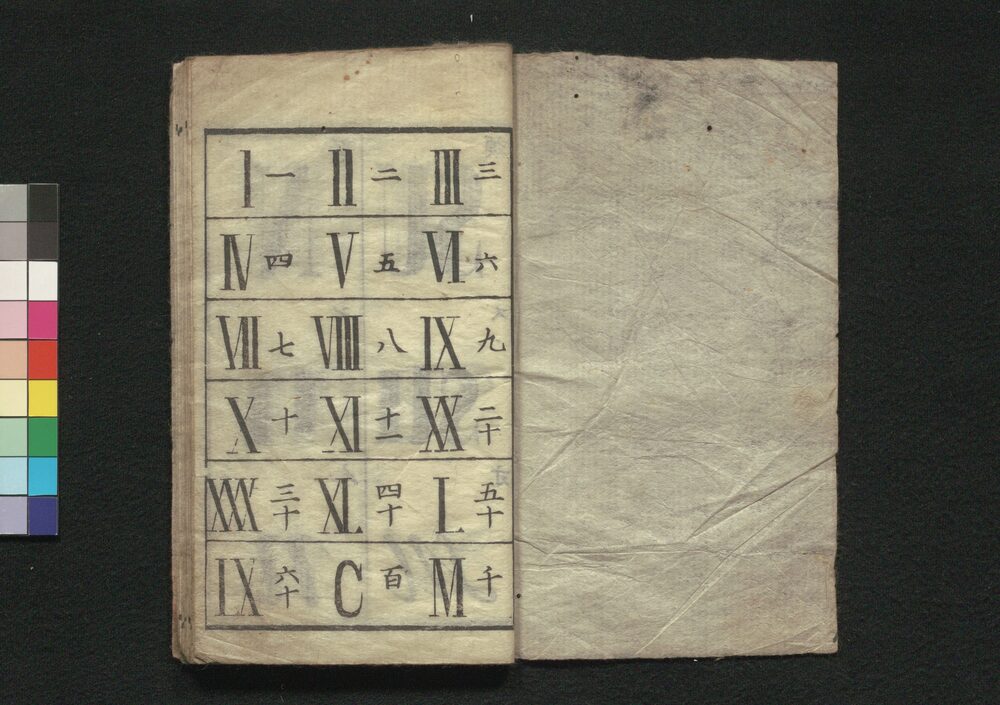 I 一 II 二 III 三
IV 四 V 五 VI 六
VII 七 VIII 八 IX 九
X 十 XI 十一 XX 二十
XXX 三十 XL 四十 L 五十
LX 六十 C 百 M 千